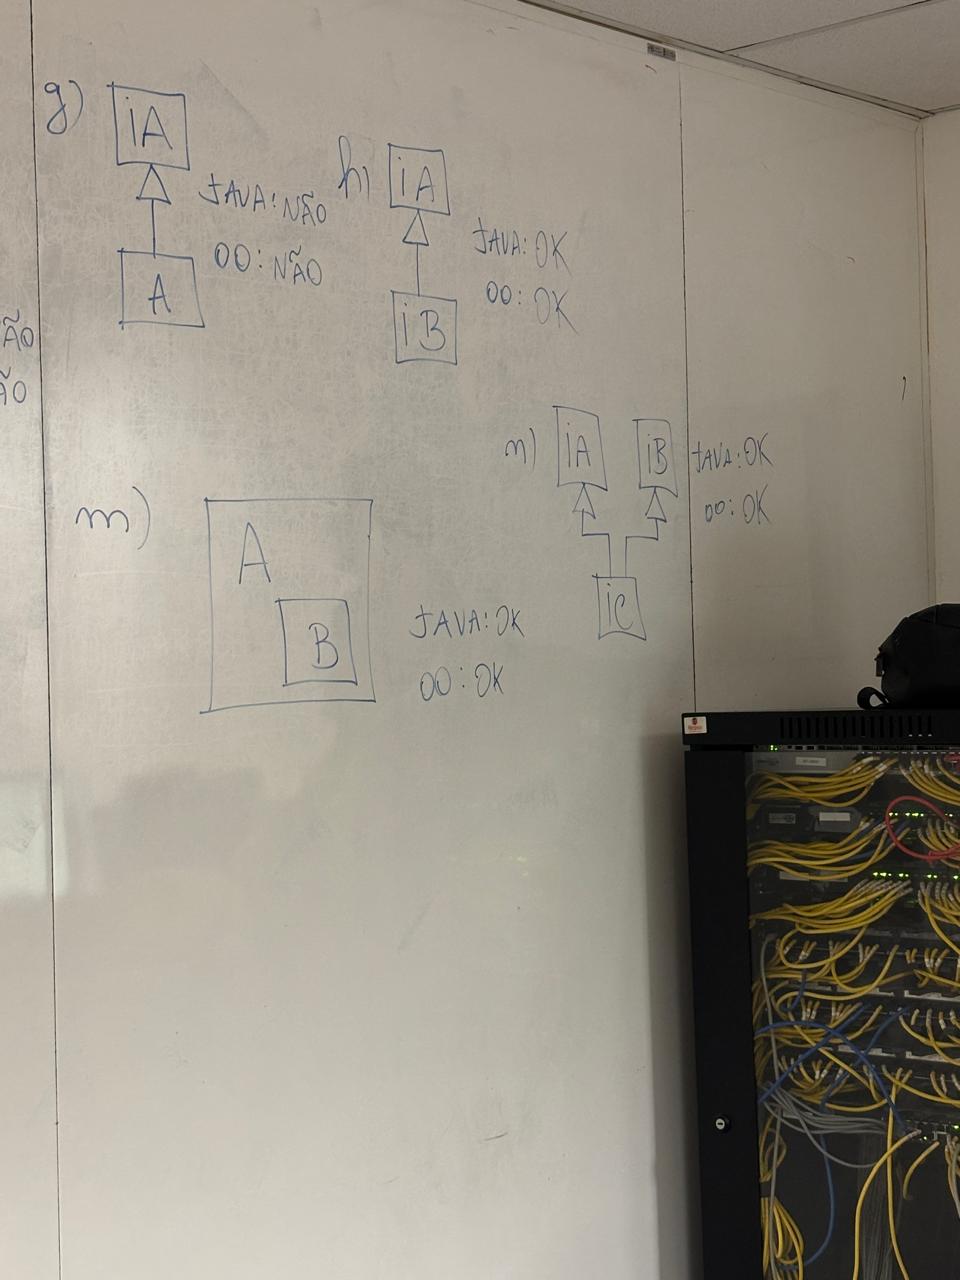 ÃO
ÃO
g)
iA
A
JAVA: NÃO
OO: NÃO
h)
iA
iB
JAVA: OK
OO: OK
m)
A
B
JAVA: OK
OO: OK
n)
iA
iB
iC
JAVA: OK
OO: OK